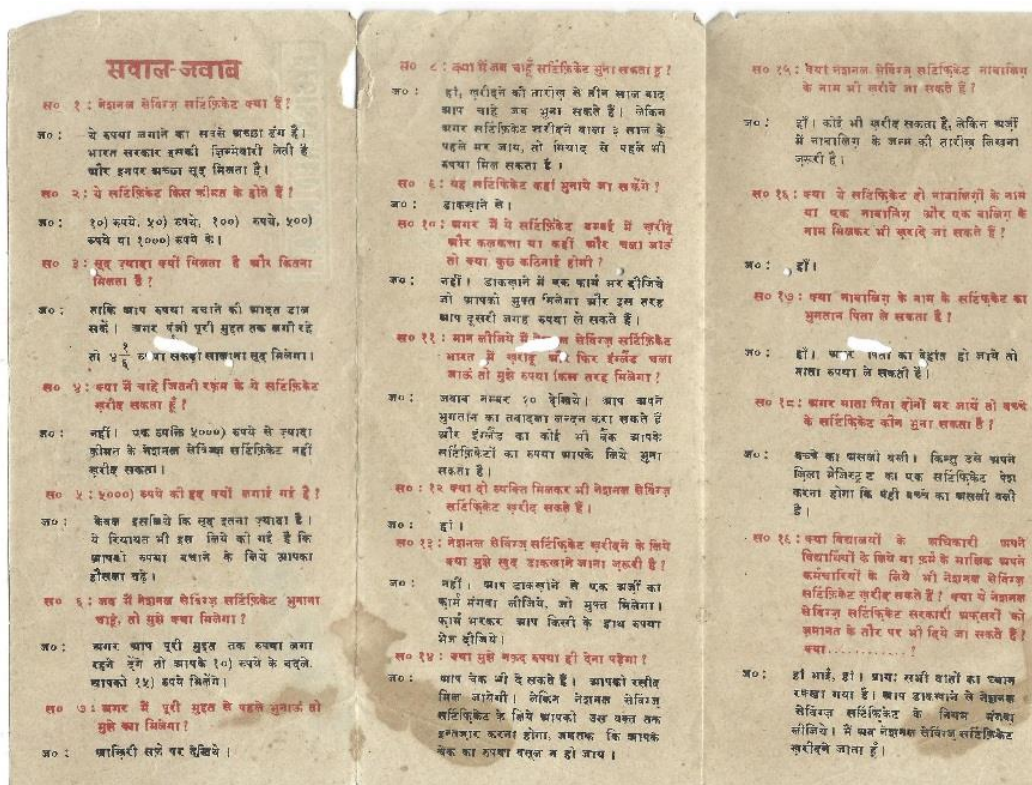 सवाल-जवाब
स० १ : नेशनल सेविंग्ज़ सर्टिफ़िकेट क्या हैं?
ज० : ये रुपया लगाने का सबसे अच्छा ढंग है।
भारत सरकार इसकी ज़िम्मेवारी लेती है
और इनपर अच्छा सूद मिलता है।
स० २ : ये सर्टिफ़िकेट किस क़ीमत के होते हैं?
ज० : १०) रुपये, ५०) रुपये, १००) रुपये, ५००)
रुपये या १०००) रुपये के।
स० ३ : सूद ज़्यादा क्यों मिलता है और कितना
मिलता है?
ज० : ताकि आप रुपया बचाने की आदत डाल
सकें। अगर पूंजी पूरी मुद्दत तक लगी रहे
तो ४ १/६ सालाना सूद मिलेगा।
स० ४ : क्या मैं चाहे जितनी रक़म के ये सर्टिफ़िकेट
ख़रीद सकता हूँ?
ज० : नहीं। एक व्यक्ति ५०००) रुपये से ज़्यादा
क़ीमत के नेशनल सेविंग्ज़ सर्टिफ़िकेट नहीं
ख़रीद सकता।
स० ५ : ५०००) रुपये की हद क्यों लगाई गई है?
ज० : केवल इसलिये कि सूद इतना ज़्यादा है।
ये रियायत भी इस लिये की गई है कि
आपको रुपया बचाने के लिये आपका
हौसला बढ़े।
स० ६ : जब मैं नेशनल सेविंग्ज़ सर्टिफ़िकेट भुनाना
चाहूँ, तो मुझे क्या मिलेगा?
ज० : अगर आप पूरी मुद्दत तक रुपया लगा
रहने देंगे तो आपके १०) रुपये के बदले
आपको १५) रुपये मिलेंगे।
स० ७ : अगर मैं पूरी मुद्दत से पहले भुनाऊं तो
मुझे क्या मिलेगा?
ज० : आख़िरी सफ़े पर देखिये।
स० ८ : क्या मैं जब चाहूँ सर्टिफ़िकेट भुना सकता हूं?
ज० : हां, ख़रीदने की तारीख़ से तीन साल बाद
आप चाहे जब भुना सकते हैं। लेकिन
अगर सर्टिफ़िकेट ख़रीदने वाला ३ साल के
पहले मर जाय, तो मियाद से पहले भी
रुपया मिल सकता है।
स० ९ : यह सर्टिफ़िकेट कहां भुनाये जा सकेंगे?
ज० : डाकख़ाने से।
स० १० : अगर मैं ये सर्टिफ़िकेट बम्बई में ख़रीदूं
और कलकत्ता या कहीं और चला जाऊं
तो क्या कुछ कठिनाई होगी?
ज० : नहीं। डाकख़ाने में एक फ़ार्म भर दीजिये
जो आपको मुफ़्त मिलेगा और इस तरह
आप दूसरी जगह रुपया ले सकते हैं।
स० ११ : मान लीजिये मैं सेविंग्ज़ सर्टिफ़िकेट
भारत में ख़रीदूं और फिर इंग्लैंड चला
जाऊं तो मुझे रुपया किस तरह मिलेगा?
ज० : जवाब नम्बर १० देखिये। आप अपने
भुगतान का तबादला लन्दन करा सकते हैं
और इंग्लैंड का कोई भी बैंक आपके
सर्टिफ़िकेटों का रुपया आपके लिये भुना
सकता है।
स० : १२ क्या दो व्यक्ति मिलकर भी नेशनल सेविंग्ज़
सर्टिफ़िकेट ख़रीद सकते हैं।
ज० : हां।
स० १३ : नेशनल सेविंग्ज़ सर्टिफ़िकेट ख़रीदने के लिये
क्या मुझे ख़ुद डाकख़ाने जाना ज़रूरी है?
ज० : नहीं। आप डाकख़ाने से एक अर्ज़ी का
फ़ार्म मंगवा लीजिये, जो मुफ़्त मिलेगा।
फ़ार्म भरकर आप किसी के हाथ रुपया
भेज दीजिये।
स० १४ : क्या मुझे नक़द रुपया ही देना पड़ेगा?
ज० : आप चेक भी दे सकते हैं। आपको रसीद
मिल जायेगी। लेकिन नेशनल सेविंग्ज़
सर्टिफ़िकेट के लिये आपको उस वक़्त तक
इन्तज़ार करना होगा, जबतक कि आपके
चेक का रुपया वसूल न हो जाय।
स० १५ : क्या नेशनल सेविंग्ज़ सर्टिफ़िकेट नाबालिग़
के नाम भी ख़रीदे जा सकते हैं?
ज० : हाँ। कोई भी ख़रीद सकता है, लेकिन अर्ज़ी
में नाबालिग़ के जन्म की तारीख़ लिखना
ज़रूरी है।
स० १६ : क्या ये सर्टिफ़िकेट दो नाबालिग़ों के नाम
या एक नाबालिग़ और एक बालिग़ के
नाम मिलकर भी ख़रीदे जा सकते हैं?
ज० : हाँ।
स० १७ : क्या नाबालिग़ के नाम के सर्टिफ़िकेट का
भुगतान पिता ले सकता है?
ज० : हाँ। अगर पिता का देहांत हो जाये तो
माता रुपया ले सकती है।
स० १८ : अगर माता पिता दोनों मर जायें तो बच्चे
के सर्टिफ़िकेट कौन भुना सकता है?
ज० : बच्चे का असली वली। किन्तु उसे अपने
ज़िला मैजिस्ट्रेट का एक सर्टिफ़िकेट पेश
करना होगा कि वही बच्चे का असली वली
है।
स० १९ : क्या विद्यालयों के अधिकारी अपने
विद्यार्थियों के लिये या फ़र्म के मालिक अपने
कर्मचारियों के लिये भी नेशनल सेविंग्ज़
सर्टिफ़िकेट ख़रीद सकते हैं? क्या ये नेशनल
सेविंग्ज़ सर्टिफ़िकेट सरकारी अफ़सरों को
ज़मानत के तौर पर भी दिये जा सकते हैं?
क्या............?
ज० : हां भाई, हां। प्रायः सभी बातों का ध्यान
रक्खा गया है। आप डाकख़ाने से नेशनल
सेविंग्ज़ सर्टिफ़िकेट के नियम मंगवा
लीजिये। मैं अब नेशनल सेविंग्ज़ सर्टिफ़िकेट
ख़रीदने जाता हूँ।